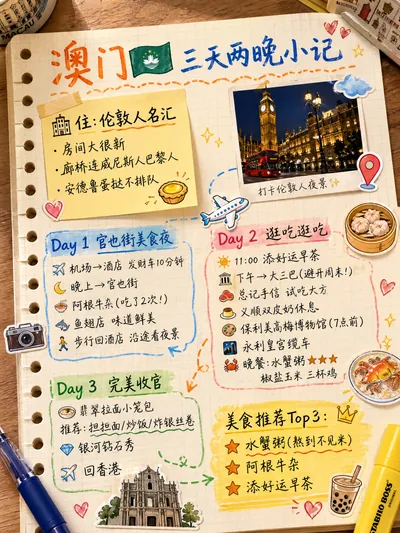 澳门 三天两晚小记
住:伦敦人名汇
·房间大很新
·廊桥连威尼斯人巴黎人
·安德鲁蛋挞不排队
打卡伦敦人夜景
Day 1 官也街美食夜
机场→酒店 发财车10分钟
晚上→官也街
阿根牛杂(吃了2次!)
鱼翅店 味道鲜美
步行回酒店 沿途看夜景
Day 2 逛吃逛吃
11:00 添好运早茶
下午→大三巴(避开周末!)
总记手信 试吃大方
义顺双皮奶休息
保利美高梅博物馆(7点前)
永利皇宫缆车
晚餐:水蟹粥★★★
椒盐玉米 三杯鸡
Day 3 完美收官
翡翠拉面小笼包
推荐:担担面/炒饭/炸银丝卷
银河钻石秀
回香港
美食推荐Top3:
水蟹粥(熬到不见米)
阿根牛杂
添好运早茶
STABILO BOSS